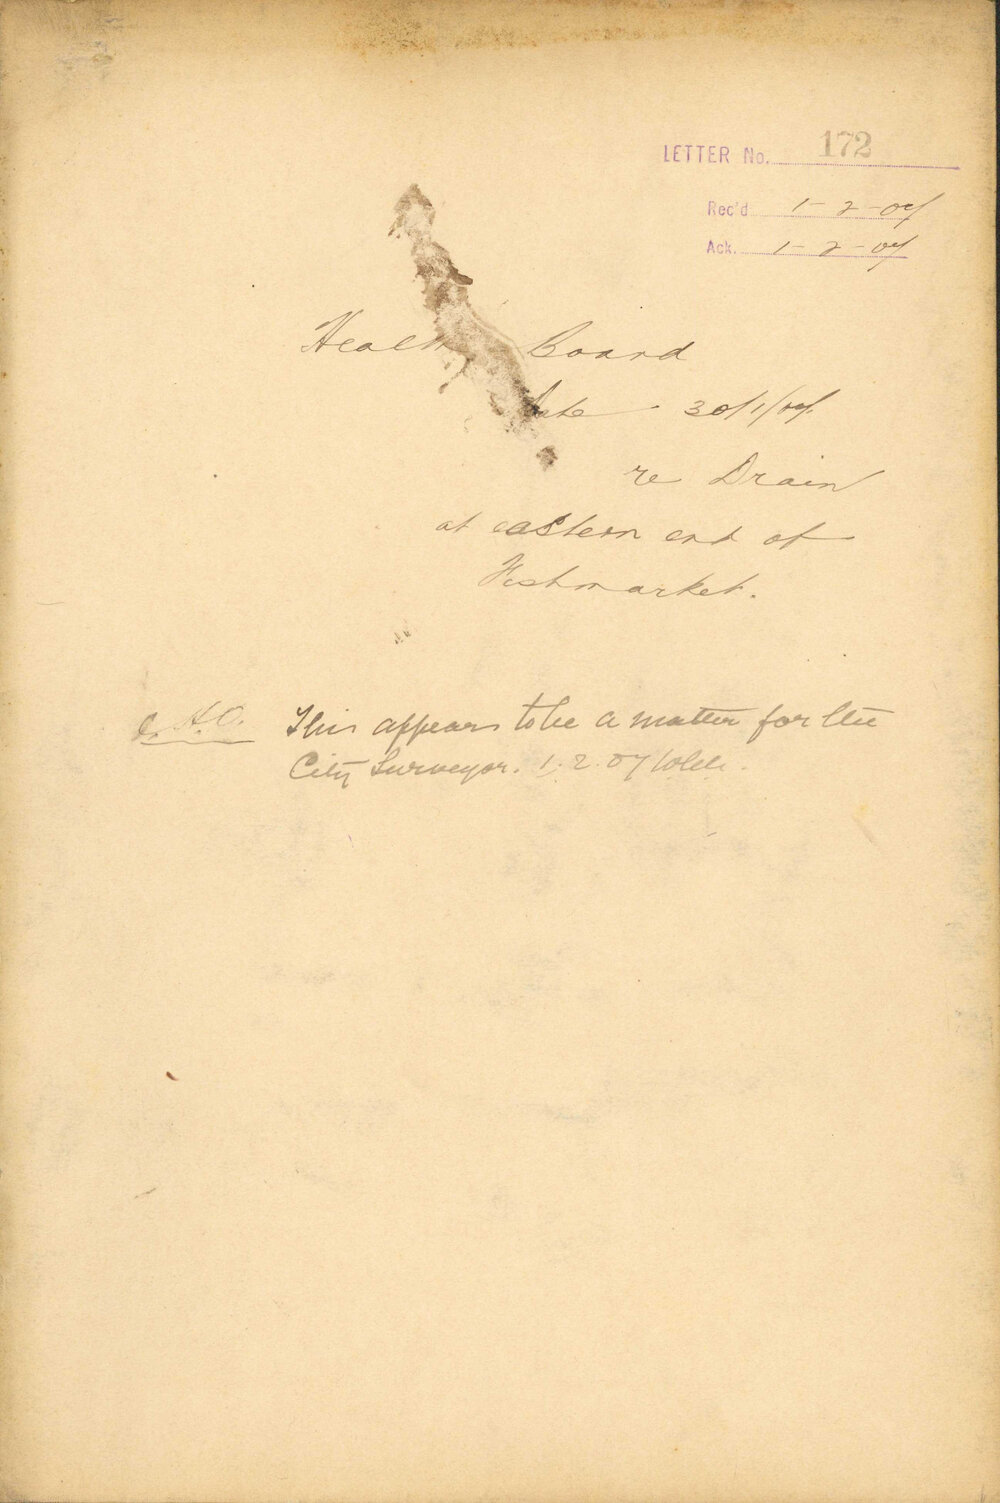 LETTER No. 172
Rec'd 1-2-07
Ack. 1-2-07
Health Board
Date 30/1/07
re Drain
at eastern end of
Fishmarket.
This appears to be a matter for the
City Surveyor. 1.2.07